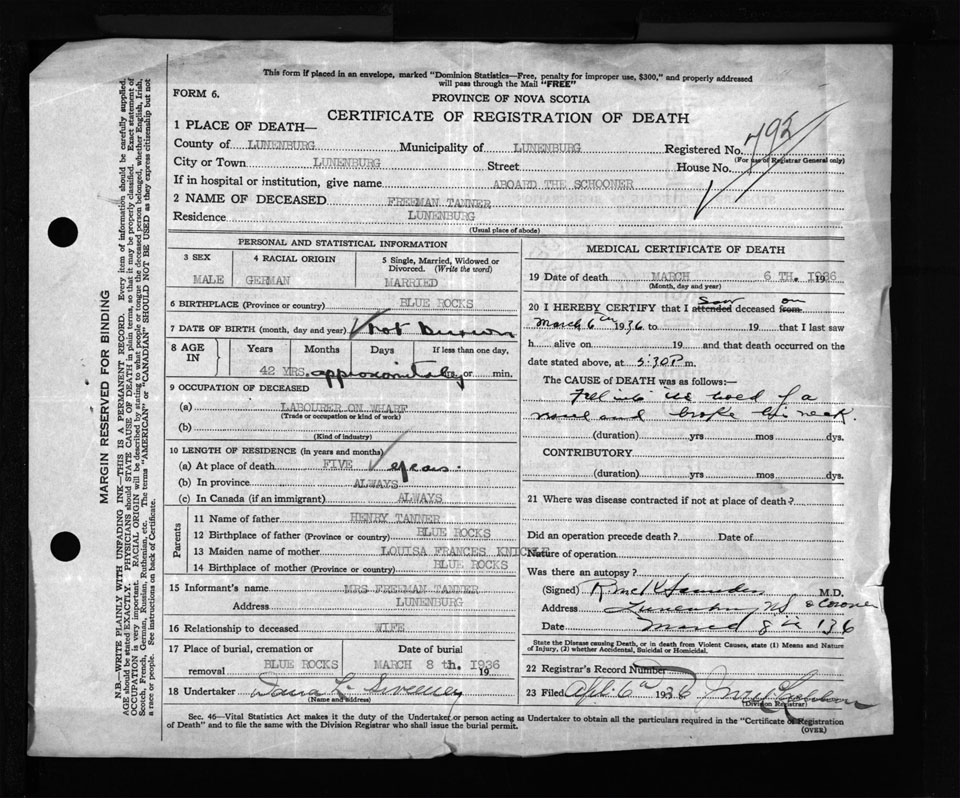 This form if placed in an envelope, marked "Dominion Statistics—Free, penalty for improper use, $300," and properly addressed
will pass through the Mail "FREE"
FORM 6.
PROVINCE OF NOVA SCOTIA
CERTIFICATE OF REGISTRATION OF DEATH
792
1 PLACE OF DEATH—
County of LUNENBURG Municipality of LUNENBURG Registered No.
(For use of Registrar General only)
City or Town LUNENBURG Street House No.
If in hospital or institution, give name ABOARD THE SCHOONER
2 NAME OF DECEASED FREEMAN TANNER
Residence LUNENBURG
(Usual place of abode)
PERSONAL AND STATISTICAL INFORMATION
3 SEX 4 RACIAL ORIGIN 5 Single, Married, Widowed or Divorced. (Write the word)
MALE GERMAN MARRIED
6 BIRTHPLACE (Province or country) BLUE ROCKS
7 DATE OF BIRTH (month, day and year) not known
8 AGE IN Years Months Days If less than one day,
42 YRS. approximately hrs. or min.
9 OCCUPATION OF DECEASED
(a) LABOURER ON WHARF
(Trade or occupation or kind of work)
(b)
(Kind of industry)
10 LENGTH OF RESIDENCE (in years and months)
(a) At place of death FIVE years.
(b) In province ALWAYS
(c) In Canada (if an immigrant) ALWAYS
Parents
11 Name of father HENRY TANNER
12 Birthplace of father (Province or country) BLUE ROCKS
13 Maiden name of mother LOUISA FRANCES KNICKLE
14 Birthplace of mother (Province or country) BLUE ROCKS
15 Informant's name MRS FREEMAN TANNER
Address LUNENBURG
16 Relationship to deceased WIFE
17 Place of burial, cremation or removal Date of burial
BLUE ROCKS MARCH 8 th. 1936 19
18 Undertaker Dana L. Sweeney
(Name and address)
MEDICAL CERTIFICATE OF DEATH
19 Date of death MARCH 6 TH. 1936
(Month, day and year)
20 I HEREBY CERTIFY that I attended saw deceased from on
March 6th 1936 to 19 that I last saw
h alive on 19 and that death occurred on the
date stated above, at 5:30 P m.
The CAUSE of DEATH was as follows:—
Fell into the hold of a
vessel and broke his neck.
(duration) yrs mos dys.
CONTRIBUTORY
(duration) yrs. mos. dys.
21 Where was disease contracted if not at place of death?
Did an operation precede death? Date of
Nature of operation
Was there an autopsy?
(Signed) M.D.
Address Lunenburg NS & Coroner
Date March 8th 1936
State the Disease causing Death, or in death from Violent Causes, state (1) Means and Nature of Injury, (2) whether Accidental, Suicidal or Homicidal.
22 Registrar's Record Number
23 Filed Apl. 6th 1936
(Division Registrar)
Sec. 46—Vital Statistics Act makes it the duty of the Undertaker or person acting as Undertaker to obtain all the particulars required in the "Certificate of Registration
of Death" and to file the same with the Division Registrar who shall issue the burial permit.
(OVER)
MARGIN RESERVED FOR BINDING
N.B.—WRITE PLAINLY WITH UNFADING INK—THIS IS A PERMANENT RECORD. Every item of information should be carefully supplied.
AGE should be stated EXACTLY. PHYSICIANS should STATE CAUSE OF DEATH in plain terms, so that it may be properly classified. Exact statement of
OCCUPATION is very important. RACIAL ORIGIN will be described by stating to what people or tongue the deceased person belonged, whether English, Irish,
Scotch, French, German, Russian, Ruthenian, etc. The terms "AMERICAN" or "CANADIAN" SHOULD NOT BE USED as they express citizenship but not
a race or people. See instructions on back of Certificate.